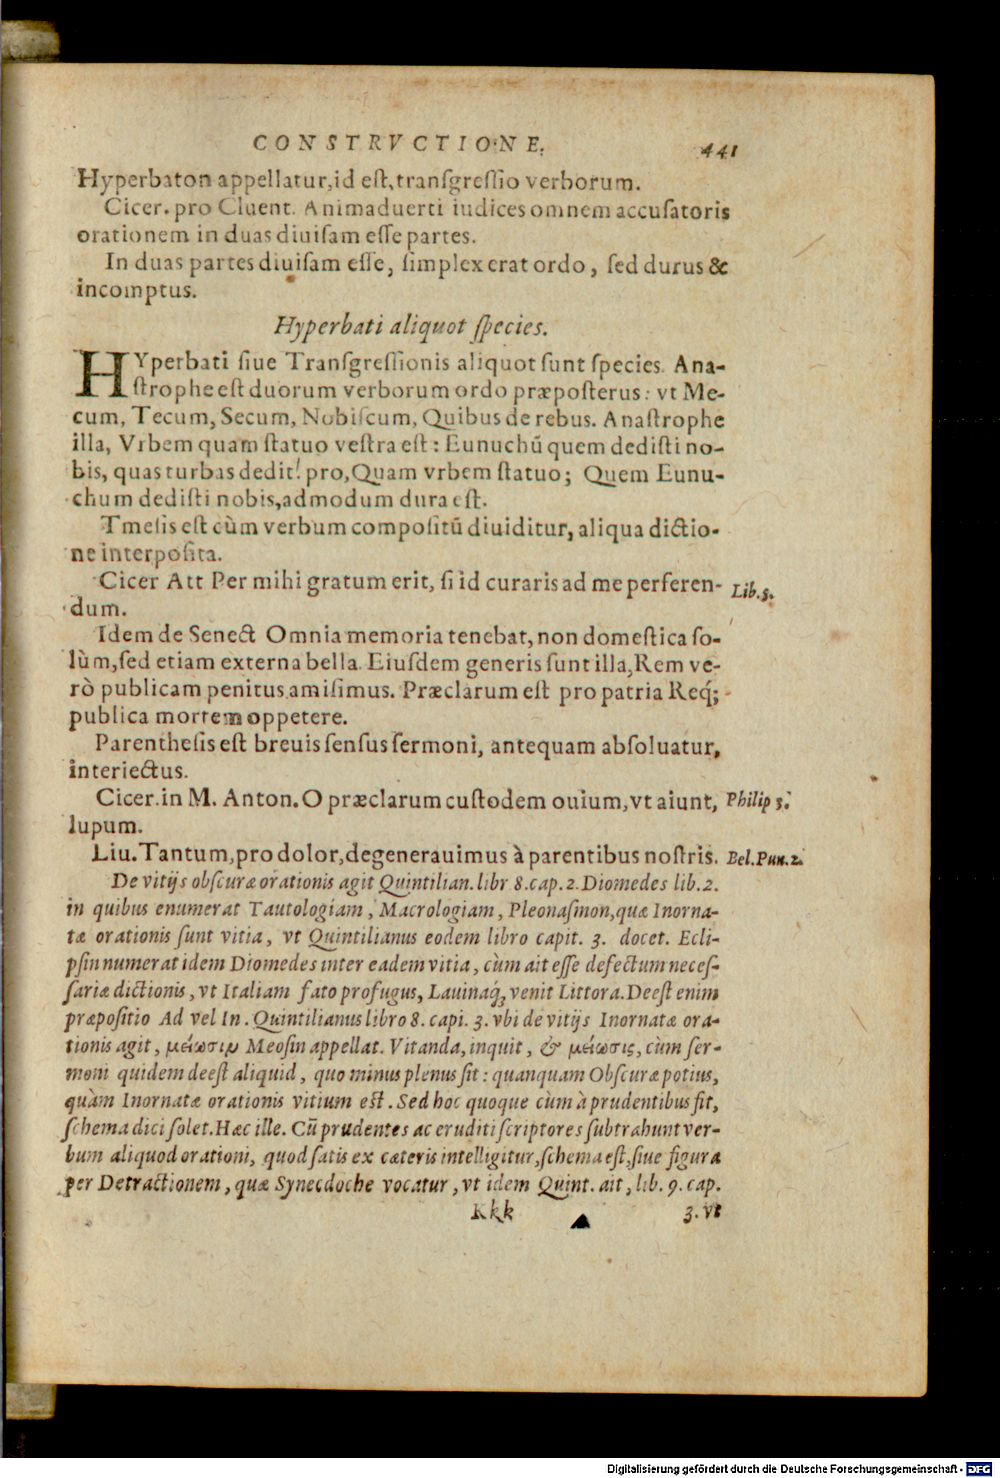 CONSTRVCTIONE. 441
Hyperbaton appellatur, id eſt, tranſgreſſio verborum.
Cicer. pro Cluent. Animaduerti iudices omnem accuſatoris
orationem in duas diuiſam eſſe partes.
In duas partes diuiſam eſſe, ſimplex erat ordo, ſed durus &
incomptus.
Hyperbati aliquot ſpecies.
HYperbati ſiue Tranſgreſſionis aliquot ſunt ſpecies. Ana-
ſtrophe eſt duorum verborum ordo præpoſterus: vt Me-
cum, Tecum, Secum, Nobiſcum, Quibus de rebus. Anaſtrophe
illa, Vrbem quam ſtatuo veſtra eſt: Eunuchū quem dediſti no-
bis, quas turbas dedit! pro, Quam vrbem ſtatuo; Quem Eunu-
chum dediſti nobis, admodum dura eſt.
Tmeſis eſt cùm verbum compoſitū diuiditur, aliqua dictio-
ne interpoſita.
Cicer Att Per mihi gratum erit, ſi id curaris ad me perferen- Lib. 5.
dum.
Idem de Senect Omnia memoria tenebat, non domeſtica ſo-
lùm, ſed etiam externa bella. Eiuſdem generis ſunt illa, Rem ve-
rò publicam penitus amiſimus. Præclarum eſt pro patria Req́;
publica mortem oppetere.
Parentheſis eſt breuis ſenſus ſermoni, antequam abſoluatur,
interiectus.
Cicer. in M. Anton. O præclarum cuſtodem ouium, vt aiunt, Philip 3.
lupum.
Liu. Tantum, pro dolor, degenerauimus à parentibus noſtris. Bel. Pun. 2.
De vitijs obſcuræ orationis agit Quintilian. libr 8. cap. 2. Diomedes lib. 2.
in quibus enumerat Tautologiam, Macrologiam, Pleonaſmon, quæ Inorna-
tæ orationis ſunt vitia, vt Quintilianus eodem libro capit. 3. docet. Ecli-
pſin numerat idem Diomedes inter eadem vitia, cùm ait eſſe defectum neceſ-
ſariæ dictionis, vt Italiam fato profugus, Lauinaq́; venit Littora. Deeſt enim
præpoſitio Ad vel In. Quintilianus libro 8. capi. 3. vbi de vitijs Inornatæ ora-
tionis agit, μείωσιν Meoſin appellat. Vitanda, inquit, & μείωσις, cùm ſer-
moni quidem deeſt aliquid, quo minus plenus ſit: quanquam Obſcuræ potius,
quàm Inornatæ orationis vitium eſt. Sed hoc quoque cùm à prudentibus fit,
ſchema dici ſolet. Hæc ille. Cū prudentes ac eruditi ſcriptores ſubtrahunt ver-
bum aliquod orationi, quod ſatis ex cæteris intelligitur, ſchema eſt, ſiue figura
per Detractionem, quæ Synecdoche vocatur, vt idem Quint. ait, lib. 9. cap.
Kkk 3. vt
Digitalisierung gefördert durch die Deutsche Forschungsgemeinschaft - DFG